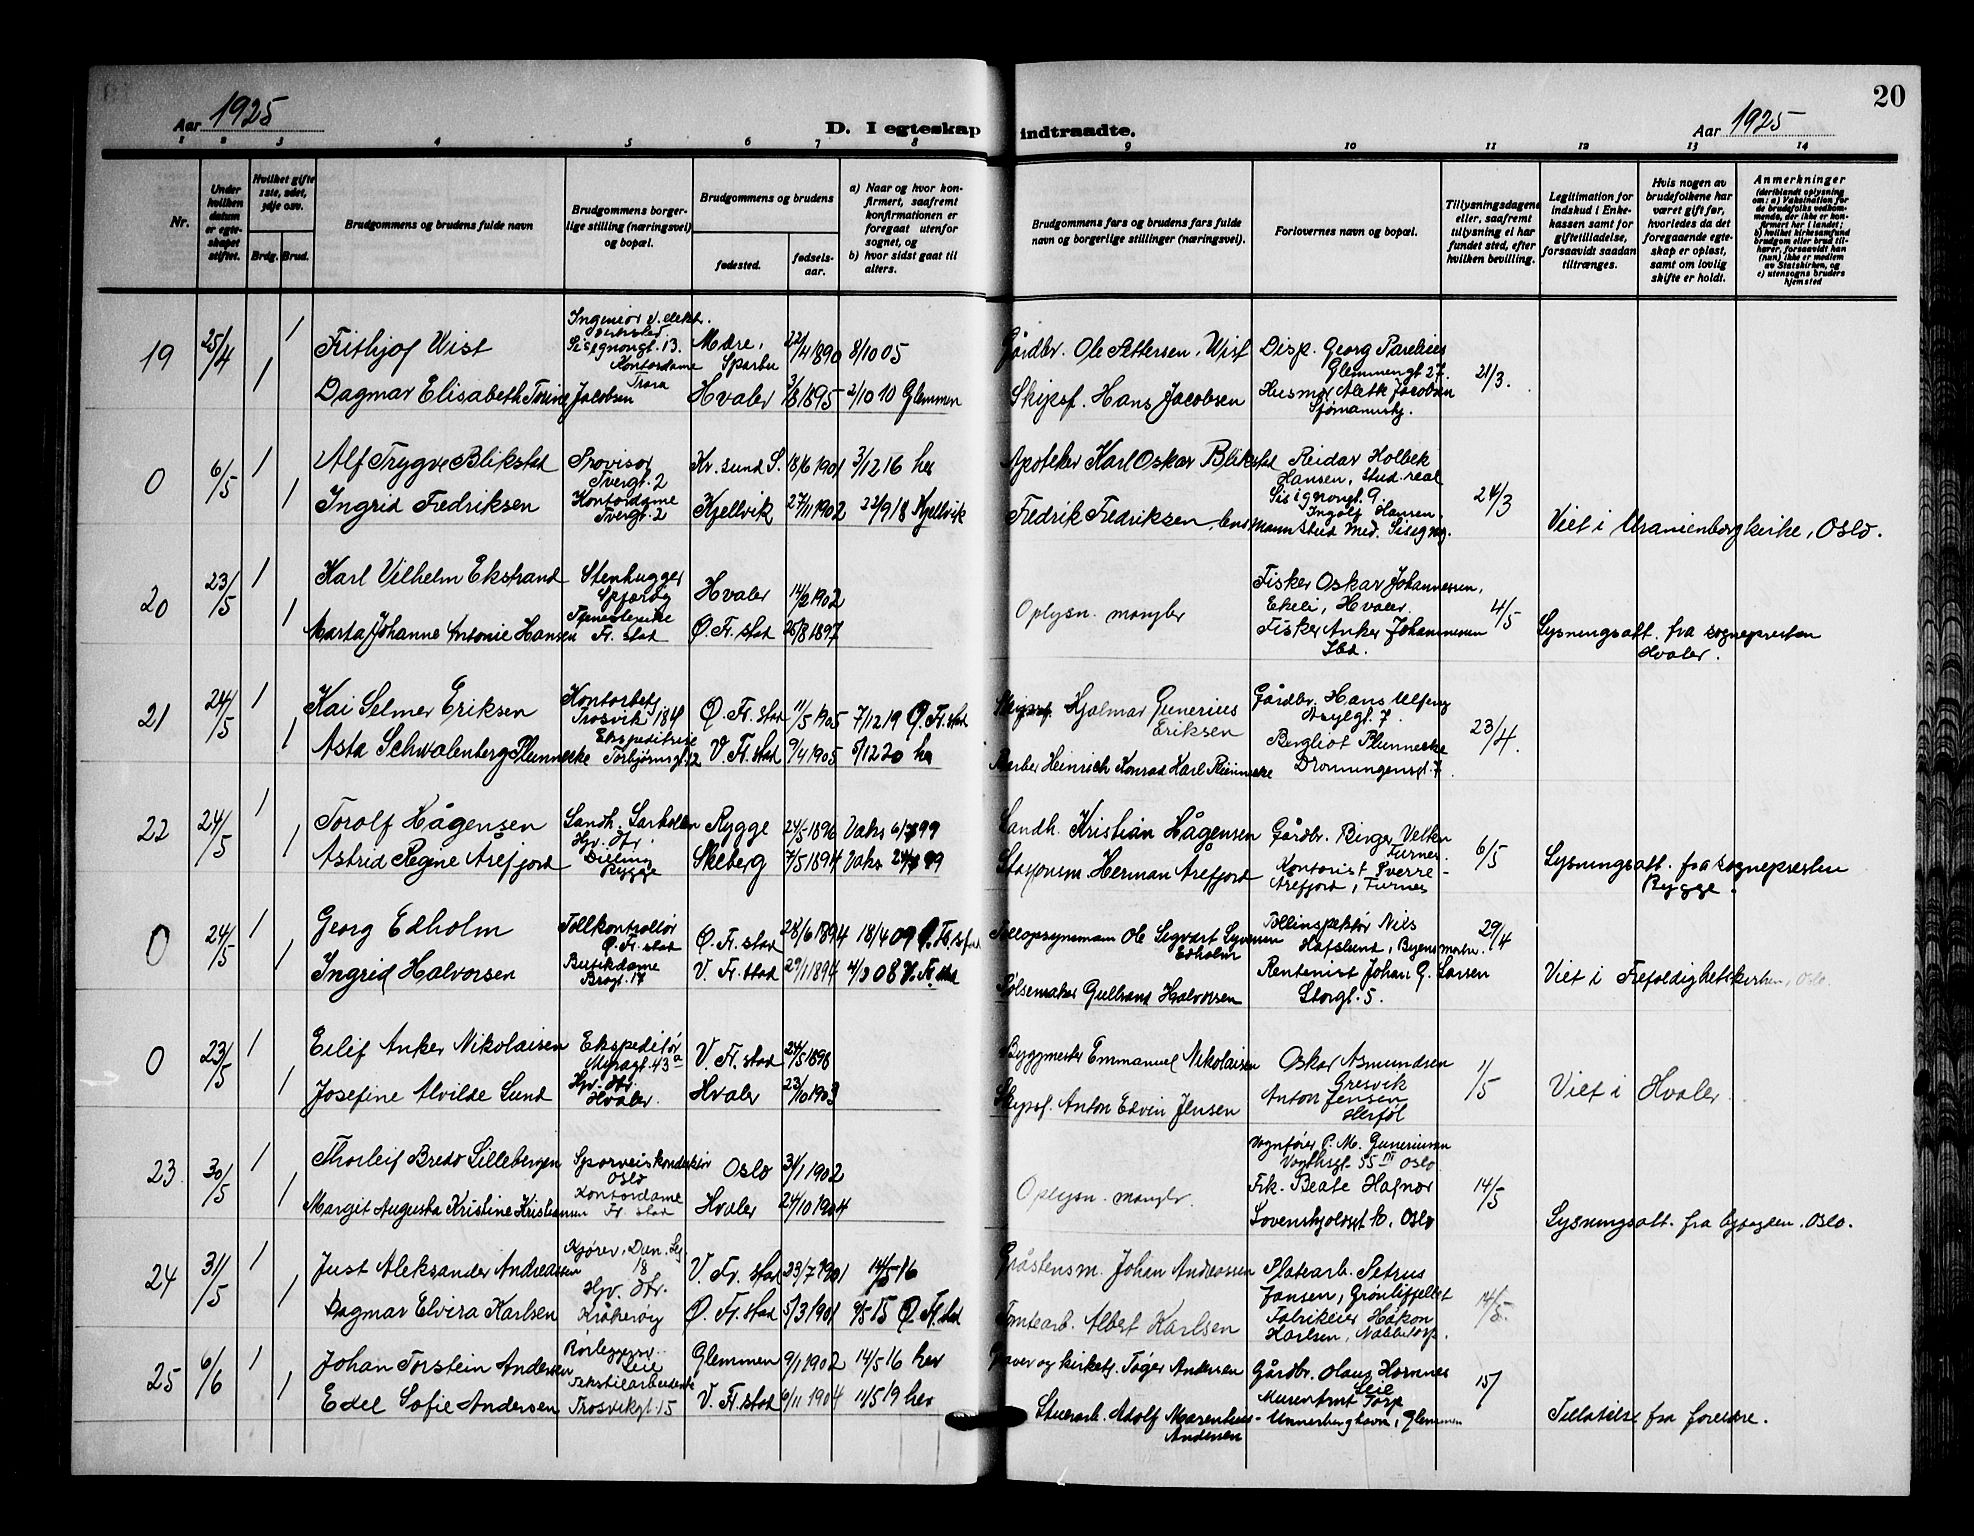 20
Aar 1925
D. I egteskap indtraadte.
Aar 1925
1 2 3 4 5 6 7 8 9 10 11 12 13 14
Nr.
Under hvilken datum er egteskapet stiftet.
Hvilket gifte 1ste, 2det, 3dje osv.
Brdg. Brud.
Brudgommens og brudens fulde navn
Brudgommens borgerlige stilling (næringsvei) og bopæl.
Brudgommens og brudens
fødested.
fødselsaar.
a) Naar og hvor konfirmert, saafremt konfirmationen er foregaat utenfor sognet, og
b) hvor sidst gaat til alters.
Brudgommens fars og brudens fars fulde navn og borgerlige stillinger (næringsvei).
Forlovernes navn og bopæl.
Tillysningsdagene eller, saafremt tillysning ei har fundet sted, efter hvilken bevilling.
Legitimation for indskud i Enkekassen samt for giftetilladelse, forsaavidt saadan tiltrænges.
Hvis nogen av brudefolkene har været gift før, hvorledes da det foregaaende egteskap er opløst, samt om lovlig skifte er holdt.
Anmerkninger
(deriblandt oplysning om: a) Vaksination for de brudefolks vedkommende, der ikke er konfirmert her i landet; b) hvilket kirkesamfund brudgom eller brud tilhører, forsaavidt han (hun) ikke er medlem av Statskirken, og c) utensogns bruders hjemsted
19 25/4 1 Fritjof Wist Ingeniør v. elektr. Sisignongt. 13. Mære, Sparbu 22/4 1890 8/10 05 Gårdbr. Ole Pettersen Wist Disp. Georg Parelius Glemmengt 27. 21/3.
1 Dagmar Elisabeth Torine Jacobsen Kontordame Trara Hvaler 1895 2/10 10 Glemmen Skipsf. Hans Jacobsen Husmor Aleth Jacobsen
0 6/5 1 Alf Trygve Blikstad Provisor Tvergt. 2 Kr. sund S. 18/6 1901 3/12 16 her Apoteker Karl Oskar Blikstad Reidar Holbek Hansen, stud. real Sisignongt. 9. 24/3
1 Ingrid Fredriksen Kontordame Tvergt. 2 Kjellvik 27/11 1902 22/9 18 Kjellvik Fredrik Fredriksen, lensmann Ingolf Hansen stud med. Sisignog. Viet i Uranienborg kirke, Oslo.
20 23/5 1 Karl Vilhelm Ekstrand Stenhugger Spjærøy Hvaler 14/2 1902 Oplysn. mangler Fisker Oskar Johannessen, Ekeli, Hvaler. 4/5
1 Marta Johanne Antonie Hansen Tjenestepike Fr. stad Ø. Fr. stad 26/8 1897 Fisker Anker Johannesen Ibd. Lysningsatt. fra sognepresten Hvaler.
21 24/5 1 Kai Selmer Eriksen Kontorbetj. Trosvik 184 Ø. Fr. stad 11/5 1905 7/12 19 Ø. Fr. stad Skipsf. Hjalmar Gunerius Eriksen Gårdbr. Hans Ulfeng Asylgt. 7. 23/4.
1 Asta Schwalenberg Plunnecke Ekspeditrise Torbjørnsgt. 12 V. Fr. stad 9/4 1905 5/12 20 her Barber Heinrich Konrad Karl Plunnecke Bergliot Plunnecke Dronningensgt. 7.
22 24/5 1 Torolf Hågensen Landh. Larkollen Rygge 24/5 1896 Vaks Landh. Kristian Hågensen Gårdbr. Birger Furnes. 6/5
1 Astrid Regine Årefjord Hjv. dtr. Dilling Rygge Skeberg 7/5 1894 Vaks Stasjonsm. Herman Årefjord Kontorist Sverre Årefjord, Furnes Lysningsatt. fra sognepresten Rygge.
0 24/5 1 Georg Edholm Tollkontrollør Ø. Fr. stad Ø. Fr. stad 28/6 1894 18/4 09 Ø. Fr. stad Tollopsynsmann Ole Segvart Syversen Edholm Tollinspektør Nils Hafslund, 29/4
1 Ingrid Halvorsen Butikdame Brogt. 17 V. Fr. stad 29/1 1894 4/3 08 V. Fr. stad Pølsemaker Gulbrand Halvorsen Rentenist Johan G. Larsen Storgt. 5. Viet i Trefoldighetskirken, Oslo.
0 23/5 1 Eilif Anker Nikolaisen Ekspeditør V. Fr. stad 24/5 1898 Byggmester Emmanuel Nikolaisen Oskar Asmundsen Gresvik 1/5
1 Josefine Alvilde Lund Hjv. dtr. Hvaler. Hvaler 23/10 1903 Skipsf. Anton Edvin Jensen Anton Jensen Herføl Viet i Hvaler
23 30/5 1 Thorleif Bredo Lillebergen Sporveiskonduktør Oslo Oslo 31/1 1902 Oplysn. mangler Vognfører P. M. Gunneriusen Vogtsgt. 55 III Oslo. 14/5
1 Margit Augusta Kristine Kristiansen Kontordame Fr. stad Hvaler 24/10 1904 Frk. Beate Hafnor Løvenskjoldsgt. 10, Oslo Lysningsatt. fra byfogden. Oslo.
24 31/5 1 Just Aleksander Andreassen Kjørev. Dan. Lej 18 V. Fr. stad 23/7 1901 14/5 16 Gråstensm. Johan Andreassen Platearb. Petrus Jansen, Grønlifjellet 14/5.
1 Dagmar Elvira Karlsen Hjv. dtr. Kråkerøy Ø. Fr. stad 5/3 1901 9/5 15 Ø. Fr. stad Tomtearb. Albert Karlsen Fabrikeier Håkon Karlsen, Nabbetorp.
25 6/6 1 Johan Torstein Andersen Rørleggersv. Leie Glemmen 9/1 1902 14/5 16 her Graver og kirketj. Tøger Andersen Gårdbr. Olaus Hornnes Leie 15/
1 Edel Sofie Andersen Tekstilarbeiderske Trosvikgt. 15 V. Fr. stad 6/11 1904 11/5 19 her Stuerarb. Adolf Marenius Andersen Murer Arnt Torp Glemmen Tillatelse fra foreldre.